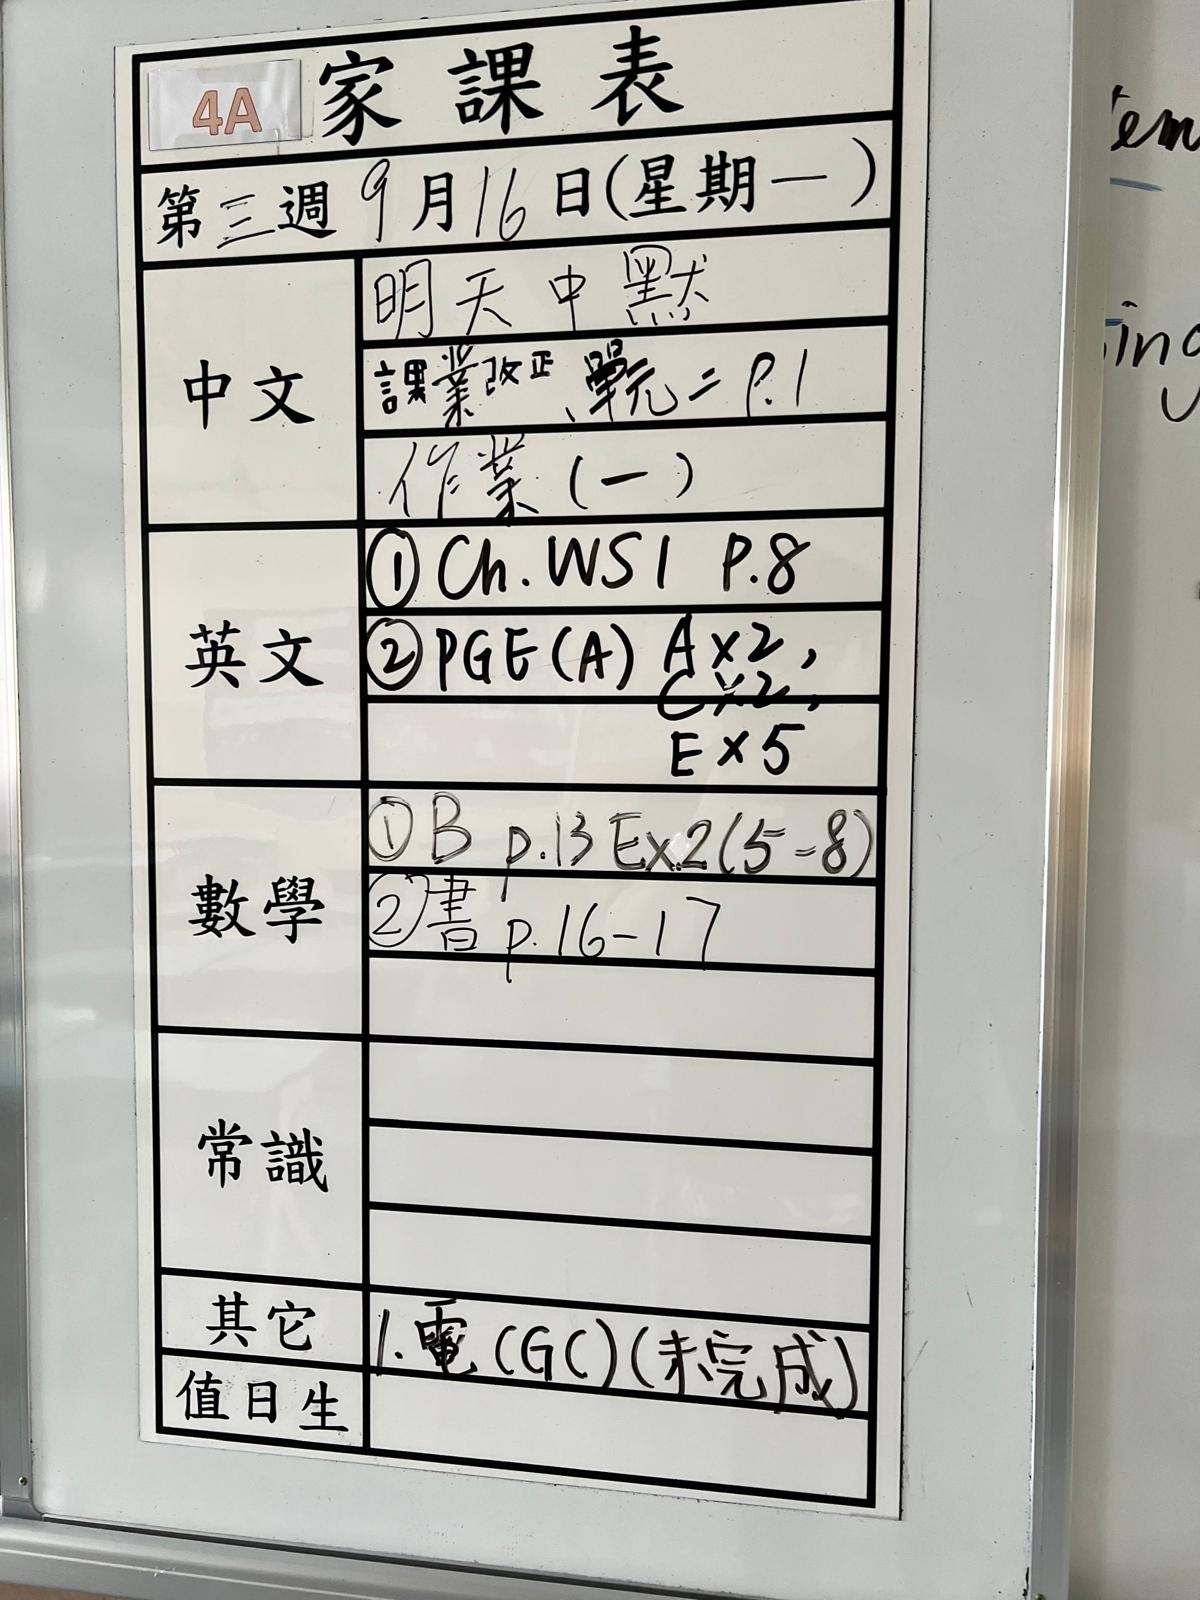 4A 家課表
第三週 9月16日(星期一)
中文
明天中默
課業改正、單元二 P.1
作業(一)
英文
① Ch. WS1 P.8
② PGE(A) A×2,
C×2,
E×5
數學
① B p.13 Ex2(5-8)
② 書 p.16-17
常識
其它
1. 電(GC)(未完成)
值日生